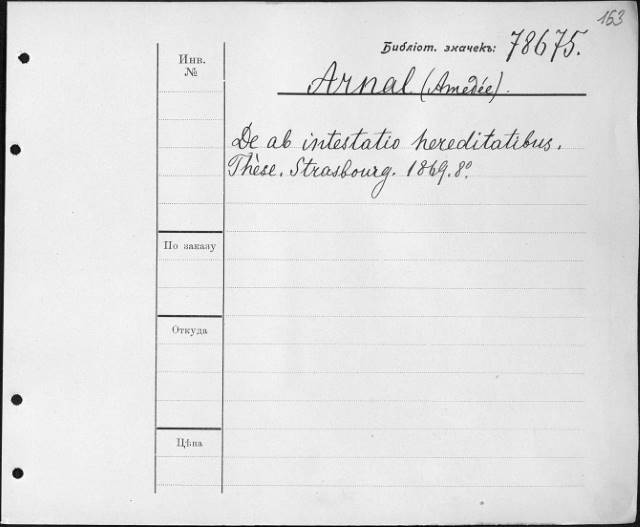 163
Библіот. значекъ: 78675.
Инв.
№
Arnal (Amedée).
De ab intestatio hereditatibus.
Thèse. Strasbourg. 1869. 8º.
По заказу
Откуда
Цѣна